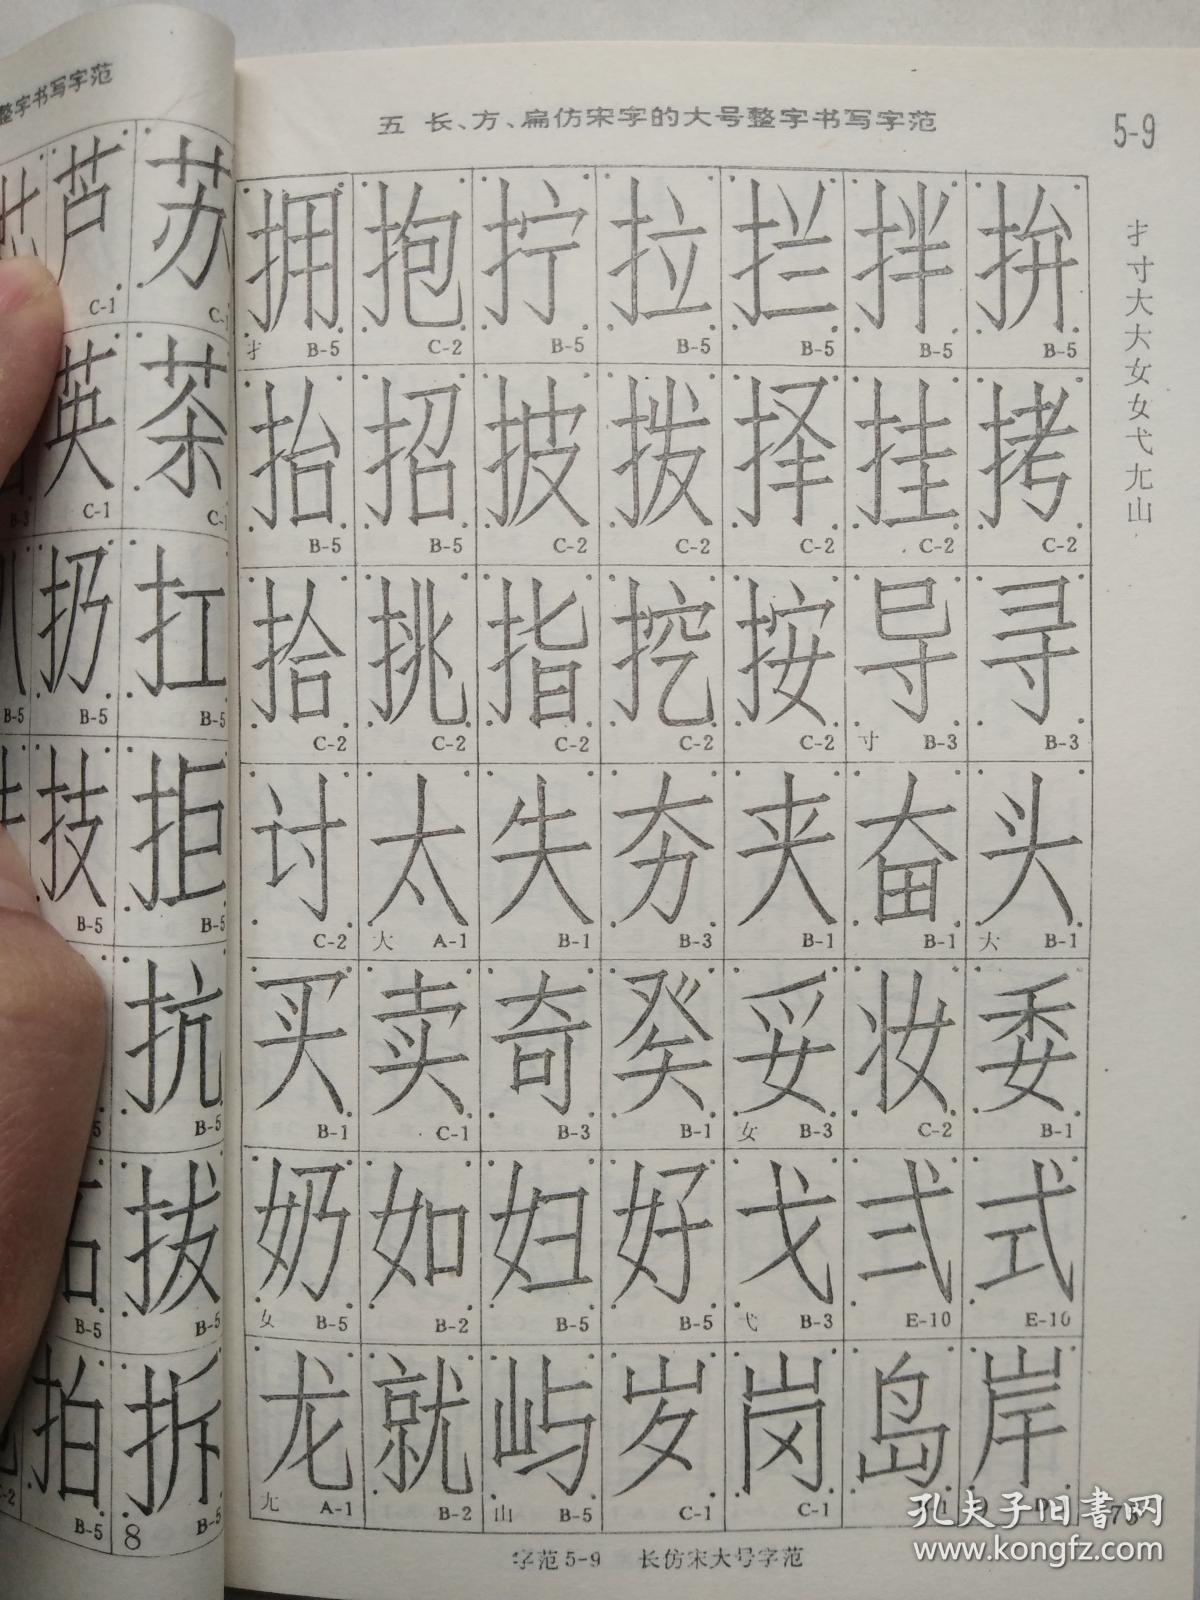 整字书写字范
芦 苏
C-1
英 茶
B-3 C-1
扔 扛
B-5 B-5 B-5
技 拒
B-5 B-5
抗
B-5
拔
B-5 B-5
拍 拆
B-5 B-5
8
五 长、方、扁仿宋字的大号整字书写字范
5-9
扌寸大大女女弋尢山
拥 抱 拧 拉 拦 拌 拚
扌 B-5 C-2 B-5 B-5 B-5 B-5 B-5
抬 招 披 拨 择 挂 拷
B-5 B-5 C-2 C-2 C-2 C-2 C-2
拾 挑 指 挖 按 导 寻
C-2 C-2 C-2 C-2 C-2 寸 B-3 B-3
讨 太 失 夯 夹 奋 头
C-2 大 A-1 B-1 B-3 B-1 B-1 大 B-1
买 卖 奇 癸 妥 妆 委
B-1 C-1 B-3 B-1 女 B-3 C-2 B-1
奶 如 妇 好 戈 弍 式
女 B-5 B-2 B-5 B-5 弋 B-3 E-10 E-10
龙 就 屿 岁 岗 岛 岸
尢 A-1 B-2 山 B-5 C-1 C-1
字范5-9 长仿宋大号字范
孔夫子旧書网
www.kongfz.com